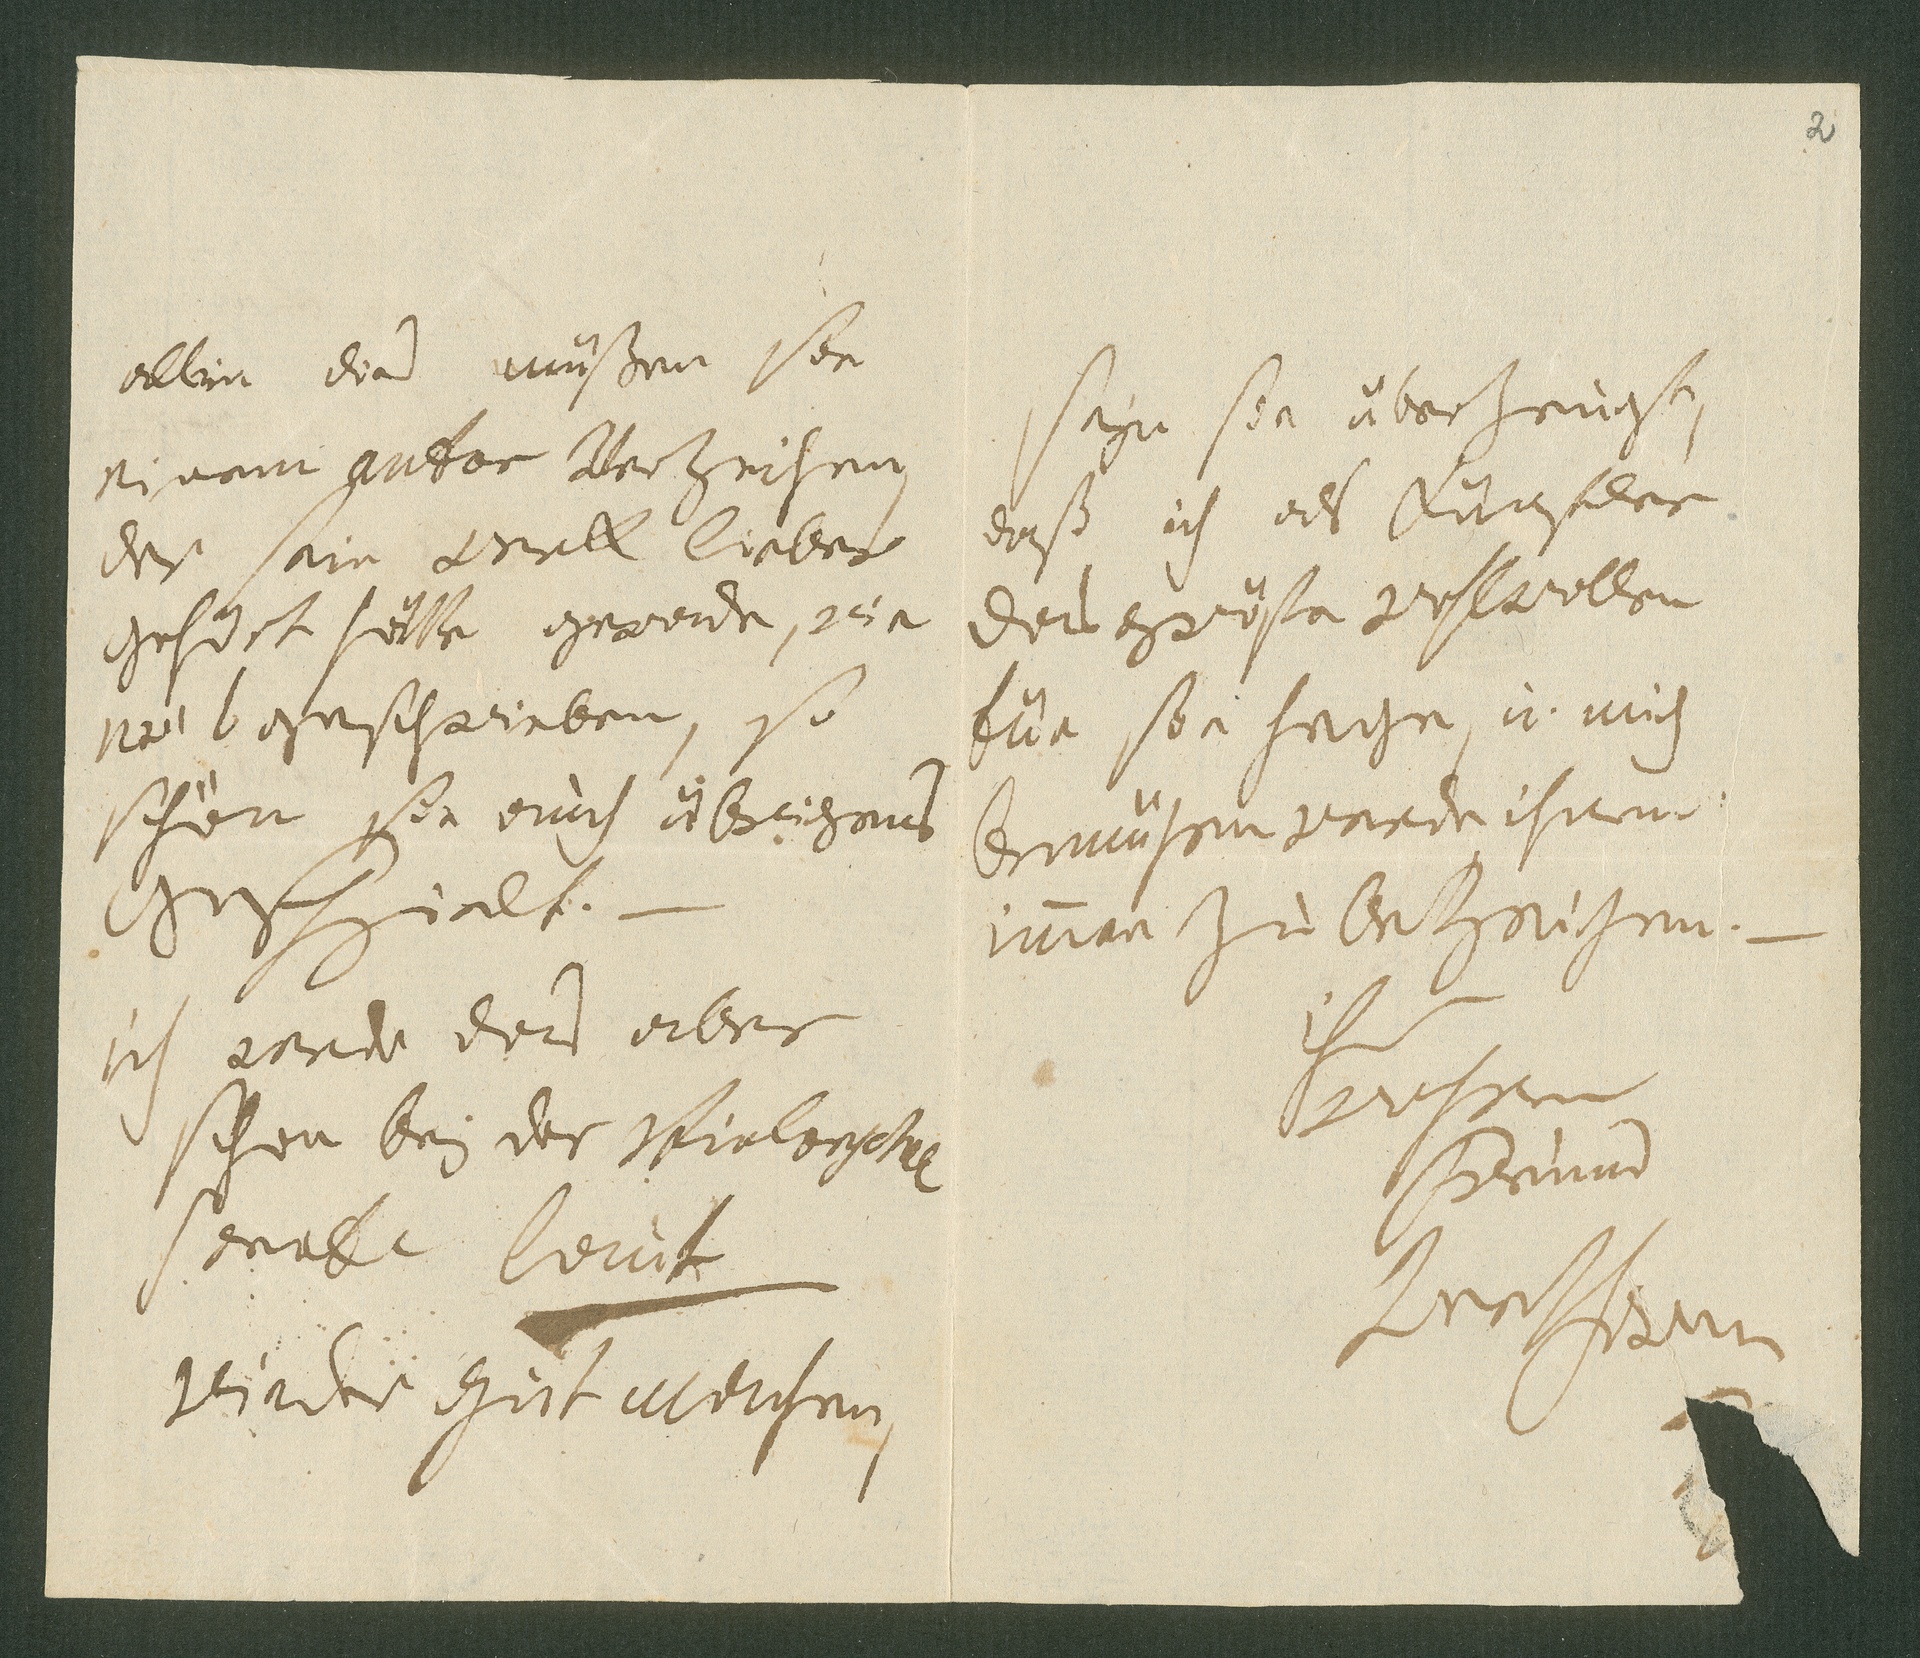 2
allein das müßen sie
einem autor Verzeihen,
der sein werk lieber
gehört hätte gerade, wie
es geschrieben, so
schön sie auch übrigens
gespielt. —
ich werde das aber
schon bej der Violonschell
sonate laut
wieder gut machen,
seyn sie überzeugt,
daß ich als Künstler
das größte wohlwollen
für sie hege, u. mich
bemühen werde ihnen
immer zu bezeugen. —
ihr
wahrer
Freund
Beethowen